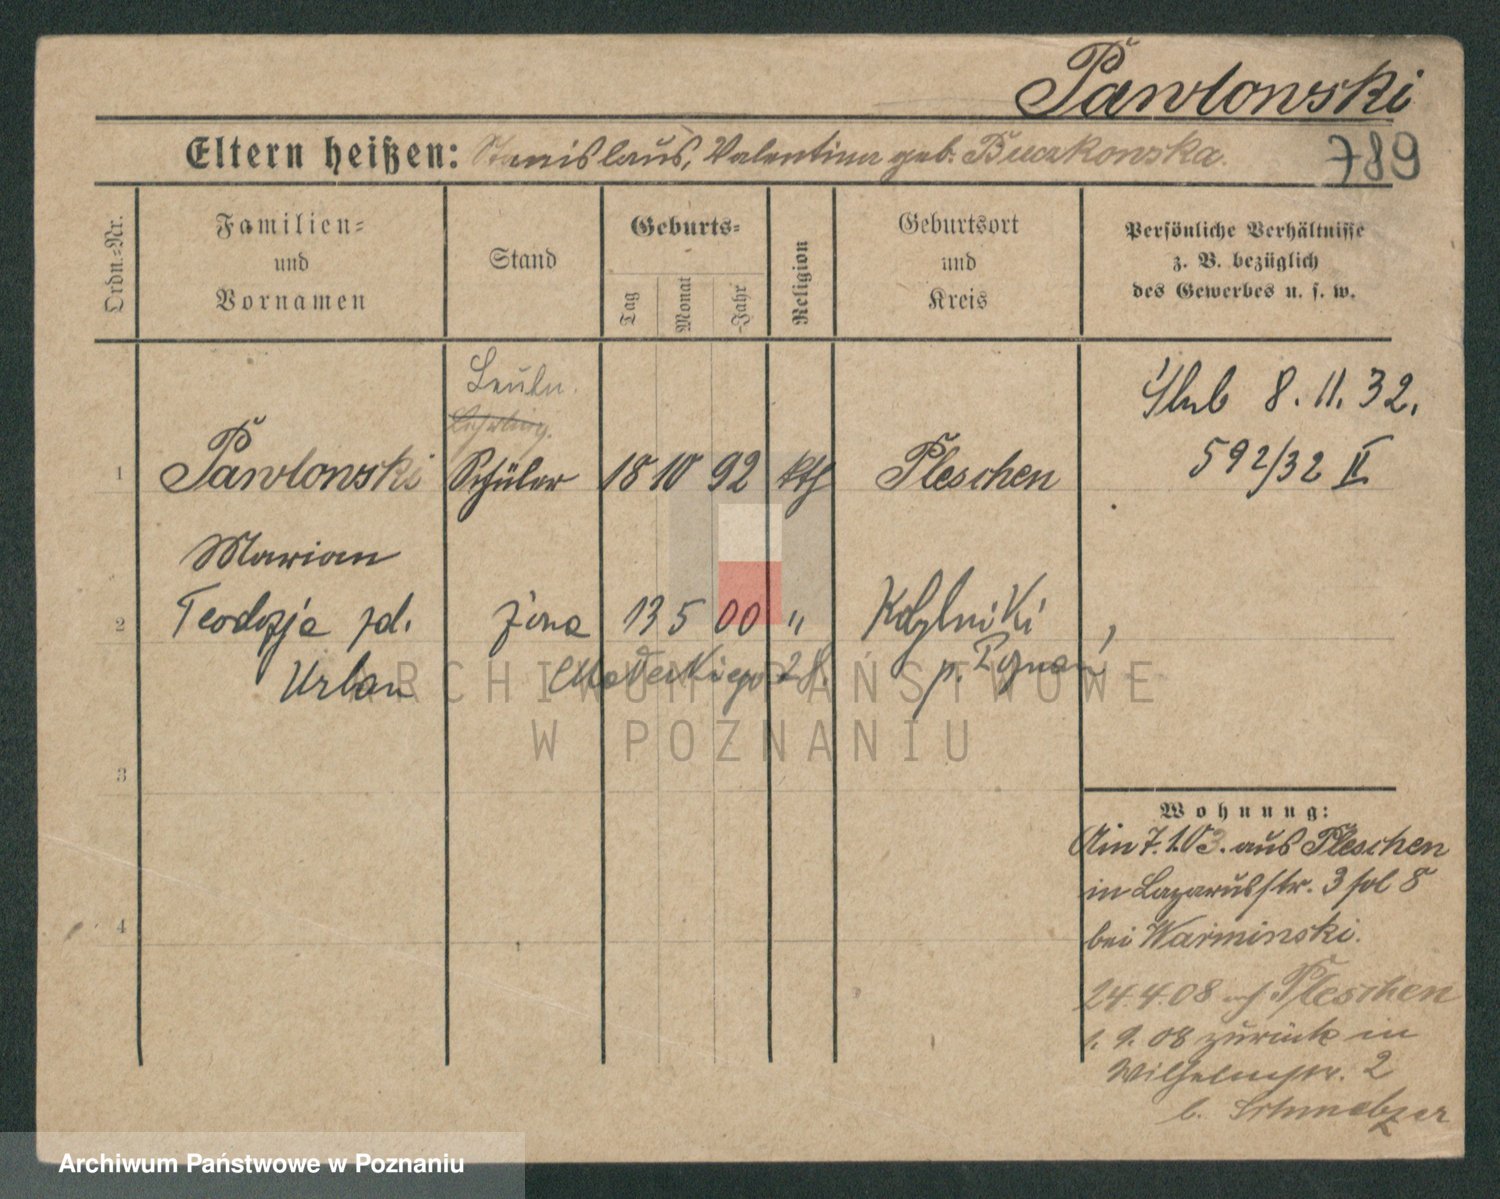 Pawlowski
789
Eltern heißen: Stanislaus, Valentina geb. Buczkowska.
Ordn.=Nr.
Familien=
und
Vornamen
Stand
Geburts=
Tag
Monat
-Jahr
Religion
Geburtsort
und
Kreis
Persönliche Verhältnisse
z. B. bezüglich
des Gewerbes u. s. w.
Ślub 8. 11. 32.
592/32 II
Lehrling.
1 Pawlowski Schüler 18 10 92 kth Pleschen
Marian
2 Teodozja zd. żona 13 5 00 " Kobylniki
Urban 28. p.
3
4
Wohnung:
Am 7.1.03. aus Pleschen
in Lazarusstr. 3 8
bei Warminski.
24.4.08 Pleschen
1. 9. 08 zurück in
Wilhelmstr. 2
b.
ARCHIWUM PAŃSTWOWE
W POZNANIU
Archiwum Państwowe w Poznaniu